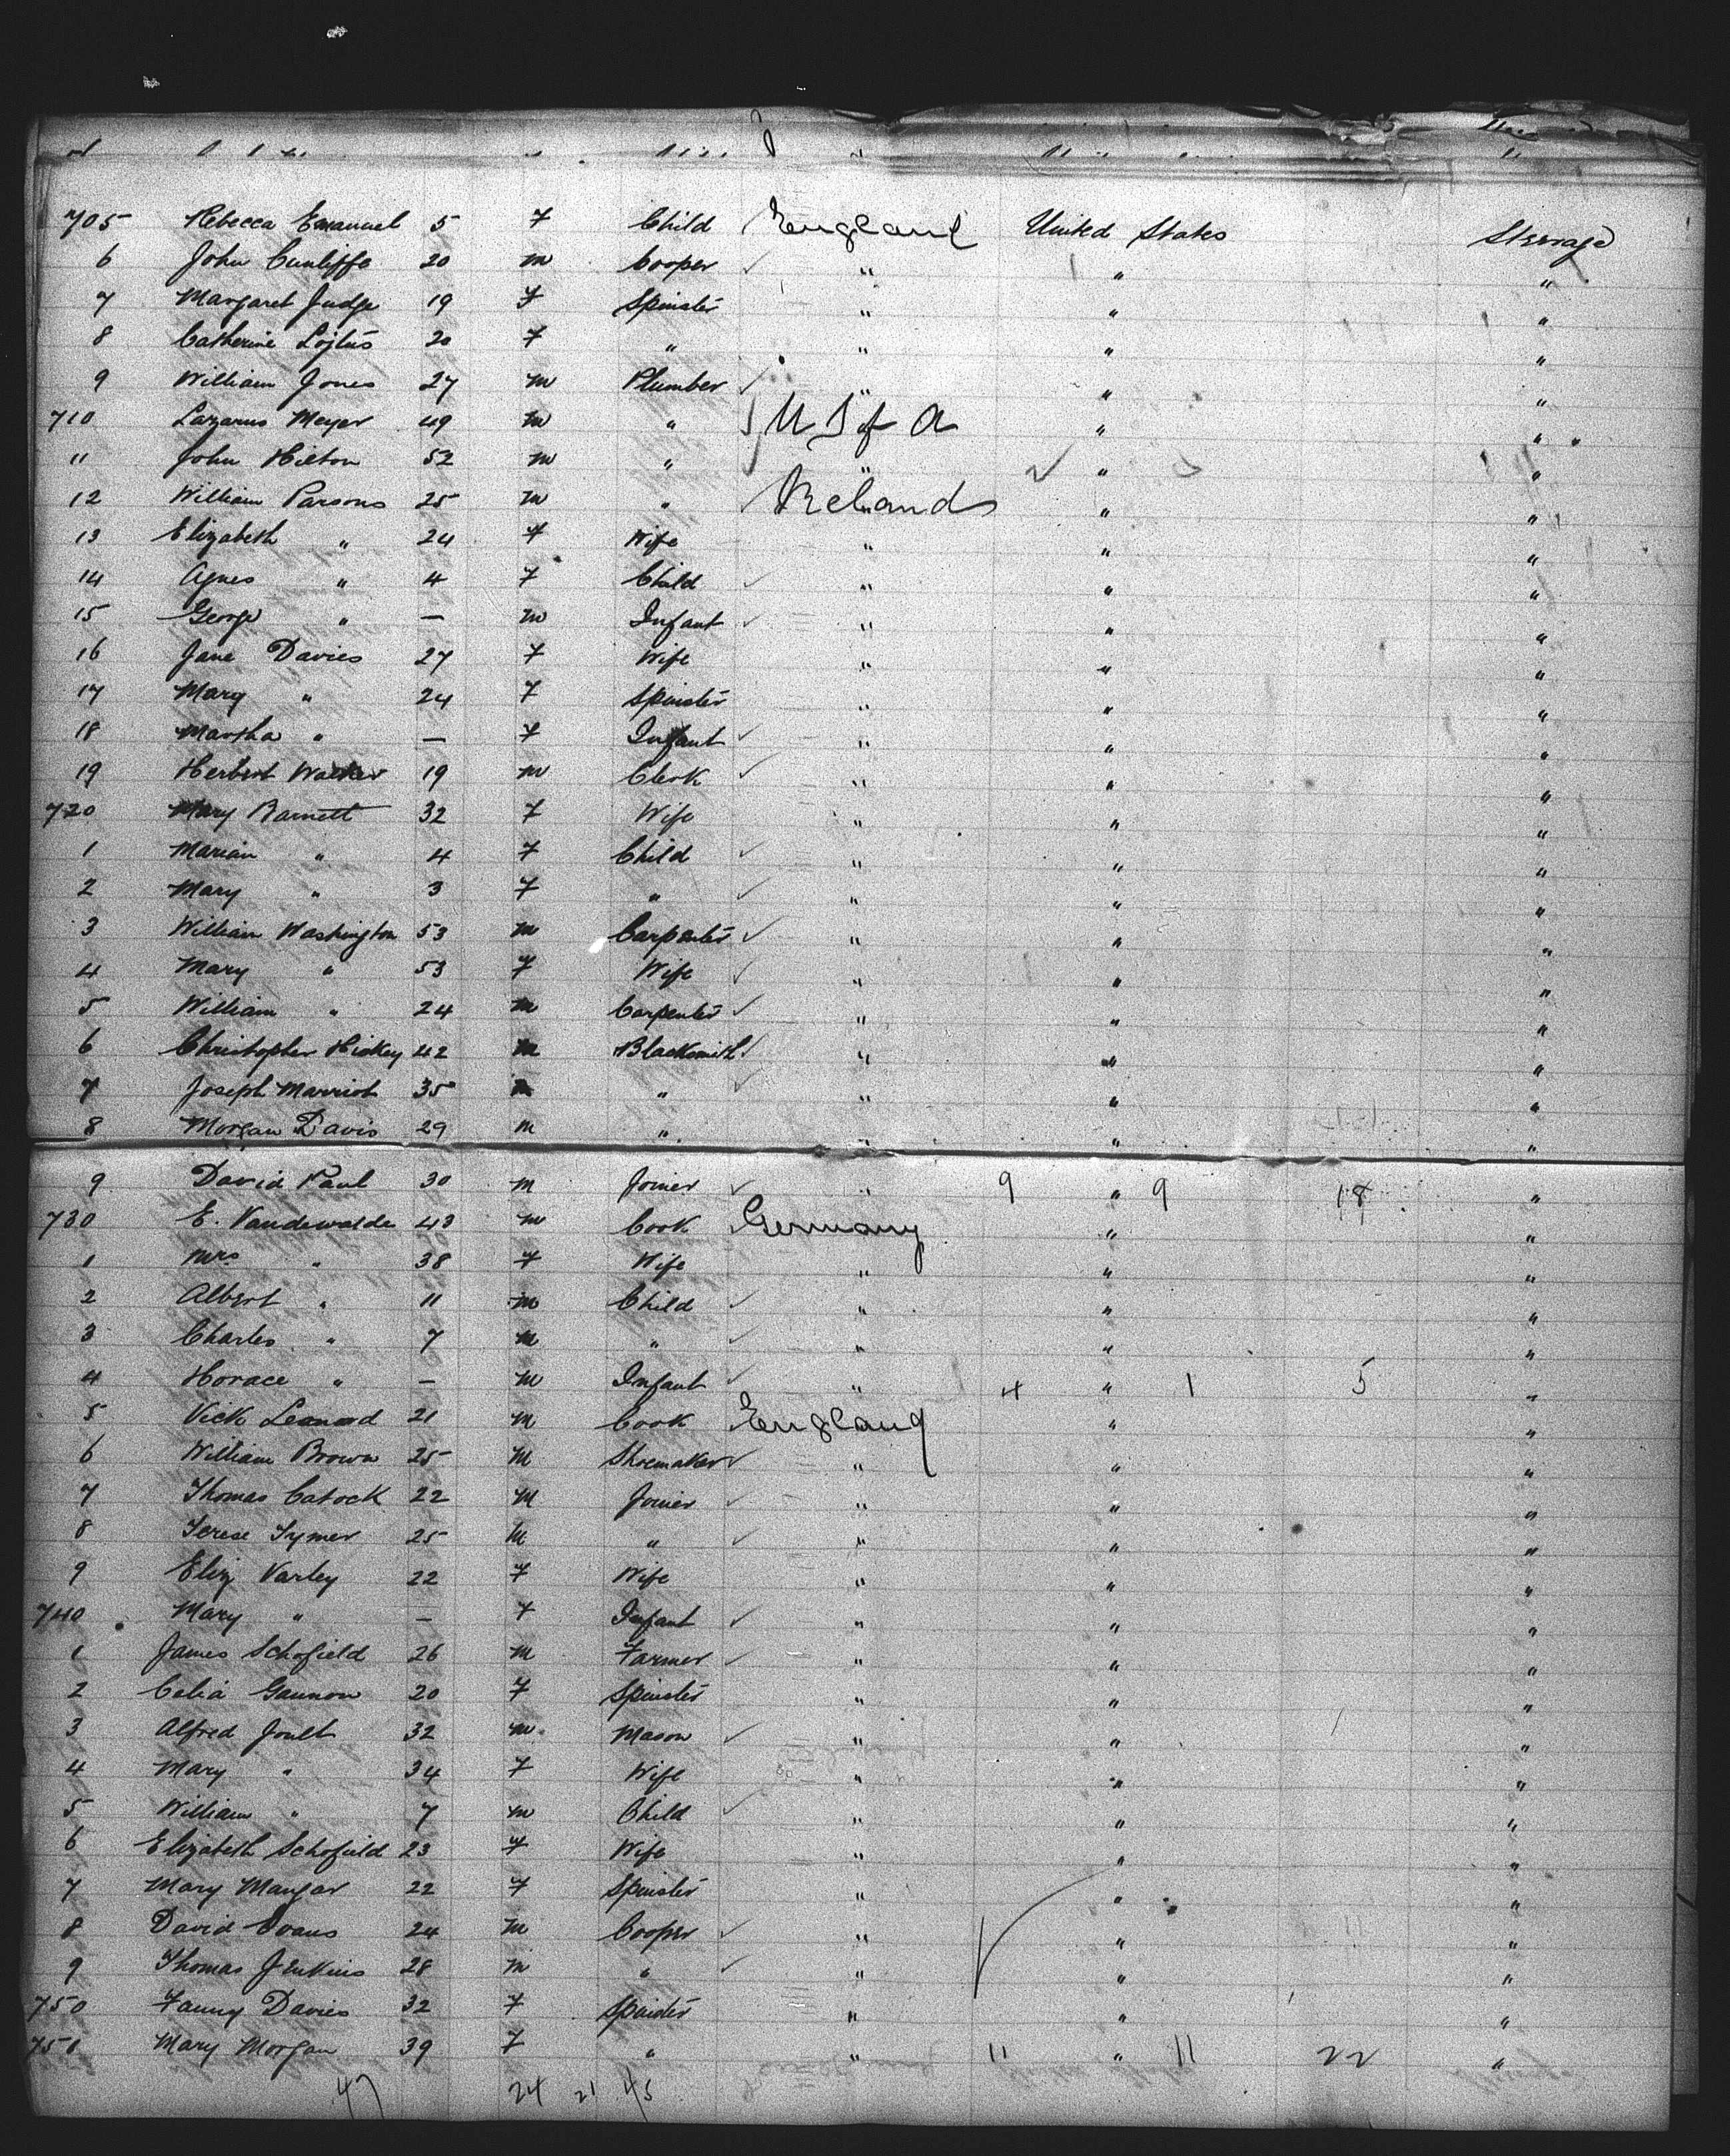 705 Rebecca Emanuel 5 F Child England United States Steerage
6 John Cunliffe 20 m Cooper " " "
7 Margaret Judge 19 F Spinster " " "
8 Catherine Loftus 20 F " " " "
9 William Jones 27 m Plumber " " "
710 Lazarus Meyer 49 m " U S of A " "
11 John Hilton 52 m " " " "
12 William Parsons 25 m " Ireland " "
13 Elizabeth " 24 F Wife " " "
14 Agnes " 4 F Child " " "
15 George " — m Infant " " "
16 Jane Davies 27 F Wife " " "
17 Mary " 24 F Spinster " " "
18 Martha " — F Infant " " "
19 Herbert Walker 19 m Clerk " " "
720 Mary Barnett 32 F Wife " " "
1 Marian " 4 F Child " " "
2 Mary " 3 F " " " "
3 William Washington 53 m Carpenter " " "
4 Mary " 53 F Wife " " "
5 William " 24 m Carpenter " " "
6 Christopher Hickey 42 m Blacksmith " " "
7 Joseph Marriot 35 m " " " "
8 Morgan Davis 29 m " " " "
9 David Paul 30 m Joiner " 9 " 9 18 "
730 E. Vandewalde 43 m Cook Germany " "
1 Mrs " 38 F Wife " " "
2 Albert " 11 m Child " " "
3 Charles " 7 m " " " "
4 Horace " — m Infant " 4 " 1 5 "
5 Vick Leonard 21 m Cook England " "
6 William Brown 25 M Shoemaker " " "
7 Thomas Catock 22 M Joiner " " "
8 Terese Tymer 25 M " " " "
9 Eliz Varley 22 F Wife " " "
740 Mary " — F Infant " " "
1 James Schofield 26 M Farmer " " "
2 Celia Gannon 20 F Spinster " " "
3 Alfred Joult 32 m Mason " " "
4 Mary " 34 F Wife " " "
5 William " 7 m Child " " "
6 Elizabeth Schofield 23 F Wife " " "
7 Mary Mangar 22 F Spinster " " "
8 David Evans 24 m Cooper " " "
9 Thomas Jenkins 28 m " " " "
750 Fanny Davies 32 F Spinster " " "
751 Mary Morgan 39 F " " 11 " 11 22 "
47 24 21 45